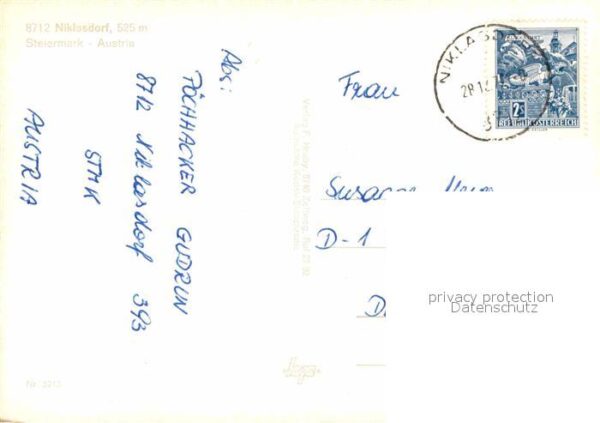 8712 Niklasdorf, 525 m
Steiermark - Austria
Abs:
PÖCHHACKER GUDRUN
8712 Niklasdorf 393
STMK
AUSTRIA
Frau
Susanne
D-1
D
2S
REPUBLIK ÖSTERREICH
privacy protection
Datenschutz
Nr. 3213